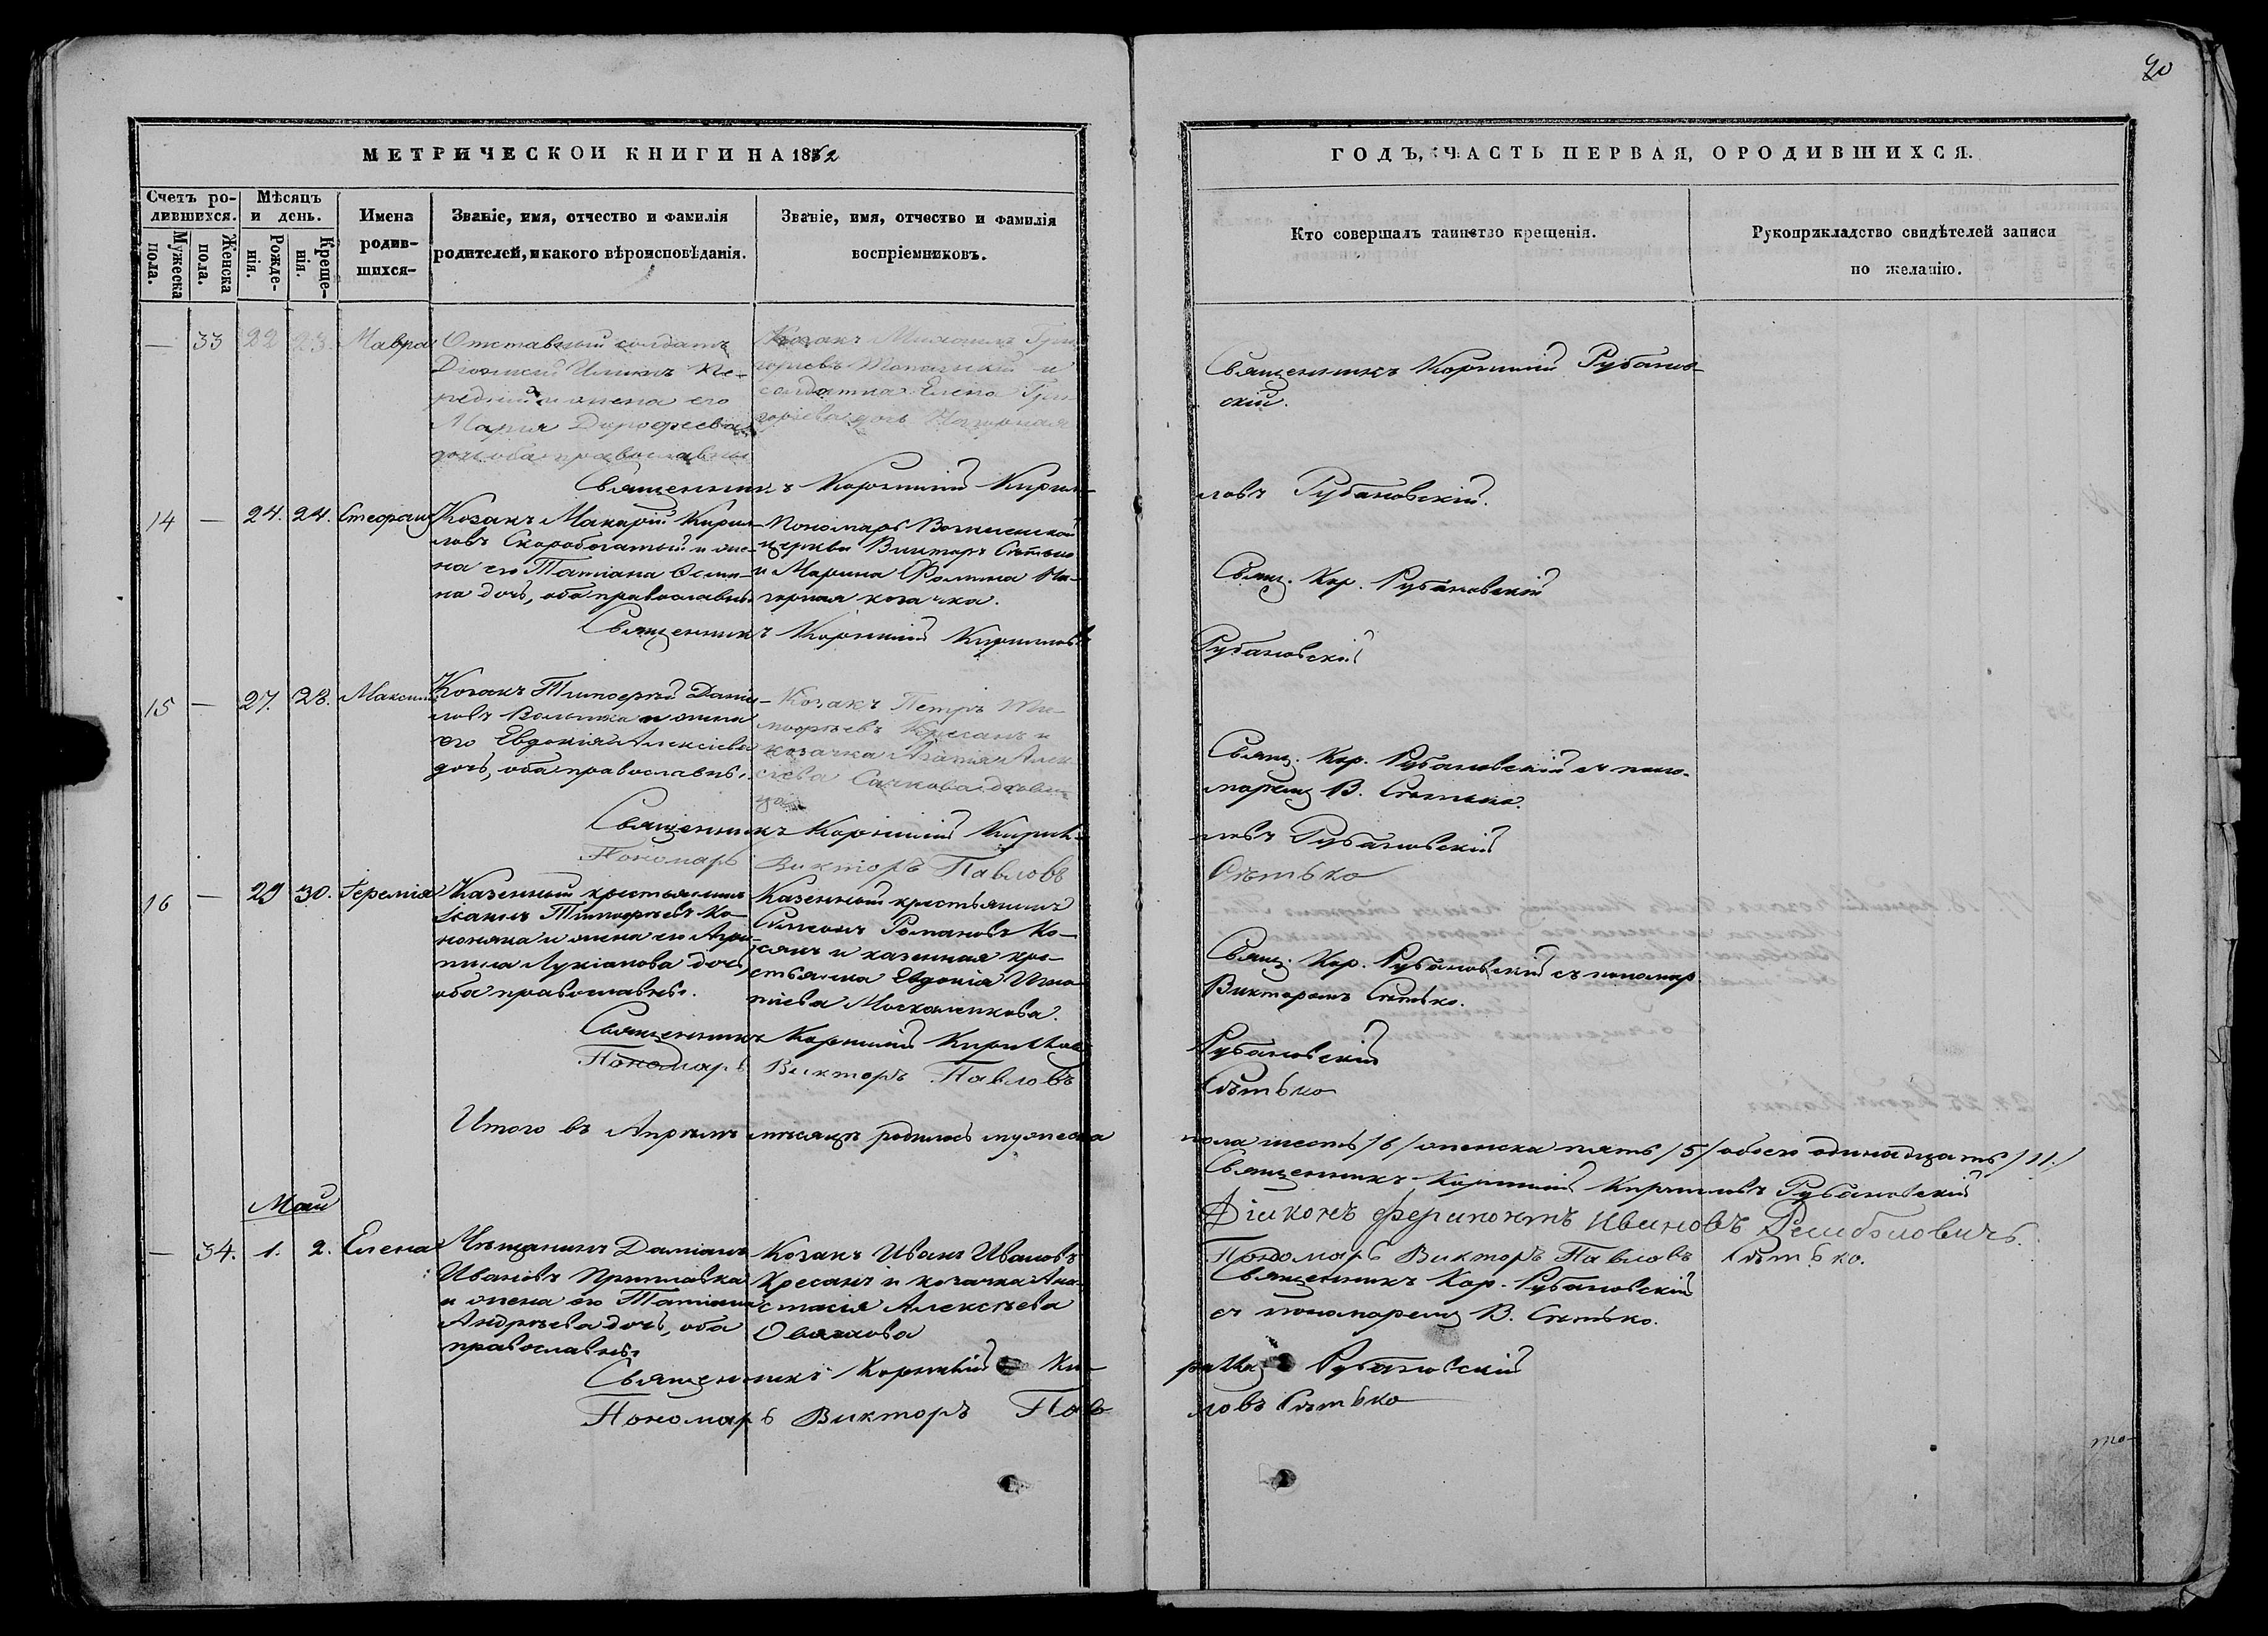 20
МЕТРИЧЕСКОЙ КНИГИ НА 1862
ГОДЪ, ЧАСТЬ ПЕРВАЯ, О РОДИВШИХСЯ.
Счетъ ро-
дившихся.
Мѣсяцъ
и день.
Мужеска
пола.
Женска
пола.
Рожде-
нія.
Креще-
нія.
Имена
родив-
шихся-
Званіе, имя, отчество и фамилія
родителей, и какого вѣроисповѣданія.
Званіе, имя, отчество и фамилія
воспріемниковъ.
Кто совершалъ таинство крещенія.
Рукоприкладство свидѣтелей записи
по желанію.
— 33 22 23. Мавра
Отставный солдатъ
и жена его
Марія Дорофеева
дочь оба православны
Козакъ Гри-
горіевъ и
солдатка Елена Гри-
горіева дочь Нагорная
Священникъ Корнилій Рубанов-
скій.
Священникъ Корнилій Кирил-
ловъ Рубановскій.
14 — 24. 24. Стефанъ
Козакъ Макарій Кирил-
ловъ Скоробогатый и же-
на его Татіана
на дочь, оба православны.
Пономарь Вознесенской
церкви Викторъ Сѣтько
и Марина Фомина На-
горная козачка.
Свящ. Кор. Рубановскій
Священникъ Корнилій Кирилловъ
Рубановскій
15 — 27. 28. Максимъ
Козакъ Тимофей Дани-
ловъ Волошка и жена
его Евдокія Алексіева
дочь, оба православны.
Козакъ Петръ Ти-
мофѣевъ Кресанъ и
козачка Агафія Алек-
сіева
Свящ. Кор. Рубановскій съ поно-
маремъ В. Сѣтько.
Священникъ Корнилій Кирил-
ловъ Рубановскій
Пономарь Викторъ Павловъ
Сѣтько
16 — 29 30. Іеремія
Казенный крестьянинъ
Тимофѣевъ Ко-
ноняка и жена его Агри-
пина Лукіанова дочь,
оба православны.
Казенный крестьянинъ
Симеонъ Романовъ Ко-
и казенная кре-
стьянка Евдокія Игна-
тіева Москаленкова.
Свящ. Кор. Рубановскій съ пономар.
Викторомъ Сѣтько.
Священникъ Корнилій Кирилловъ
Рубановскій
Пономарь Викторъ Павловъ
Сѣтько
Итого въ Апрѣлѣ мѣсяцѣ родилось мужеска
пола шесть /6/ женска пять /5/ обоего одинадцать /11./
Священникъ Корнилій Кирилловъ Рубановскій
Діаконъ Ферапонтъ Ивановъ
Пономарь Викторъ Павловъ Сѣтько.
Май
— 34. 1. 2. Елена
Мѣщанинъ Даміанъ
Ивановъ
и жена его Татіана
Андрѣева дочь, оба
православны.
Козакъ Иванъ Ивановъ
Кресанъ и козачка Ана-
стасія Алексѣева
Священникъ Кор. Рубановскій
съ пономаремъ В. Сѣтько.
Священникъ Корнилій Ки-
рилловъ Рубановскій
Пономарь Викторъ Пав-
ловъ Сѣтько